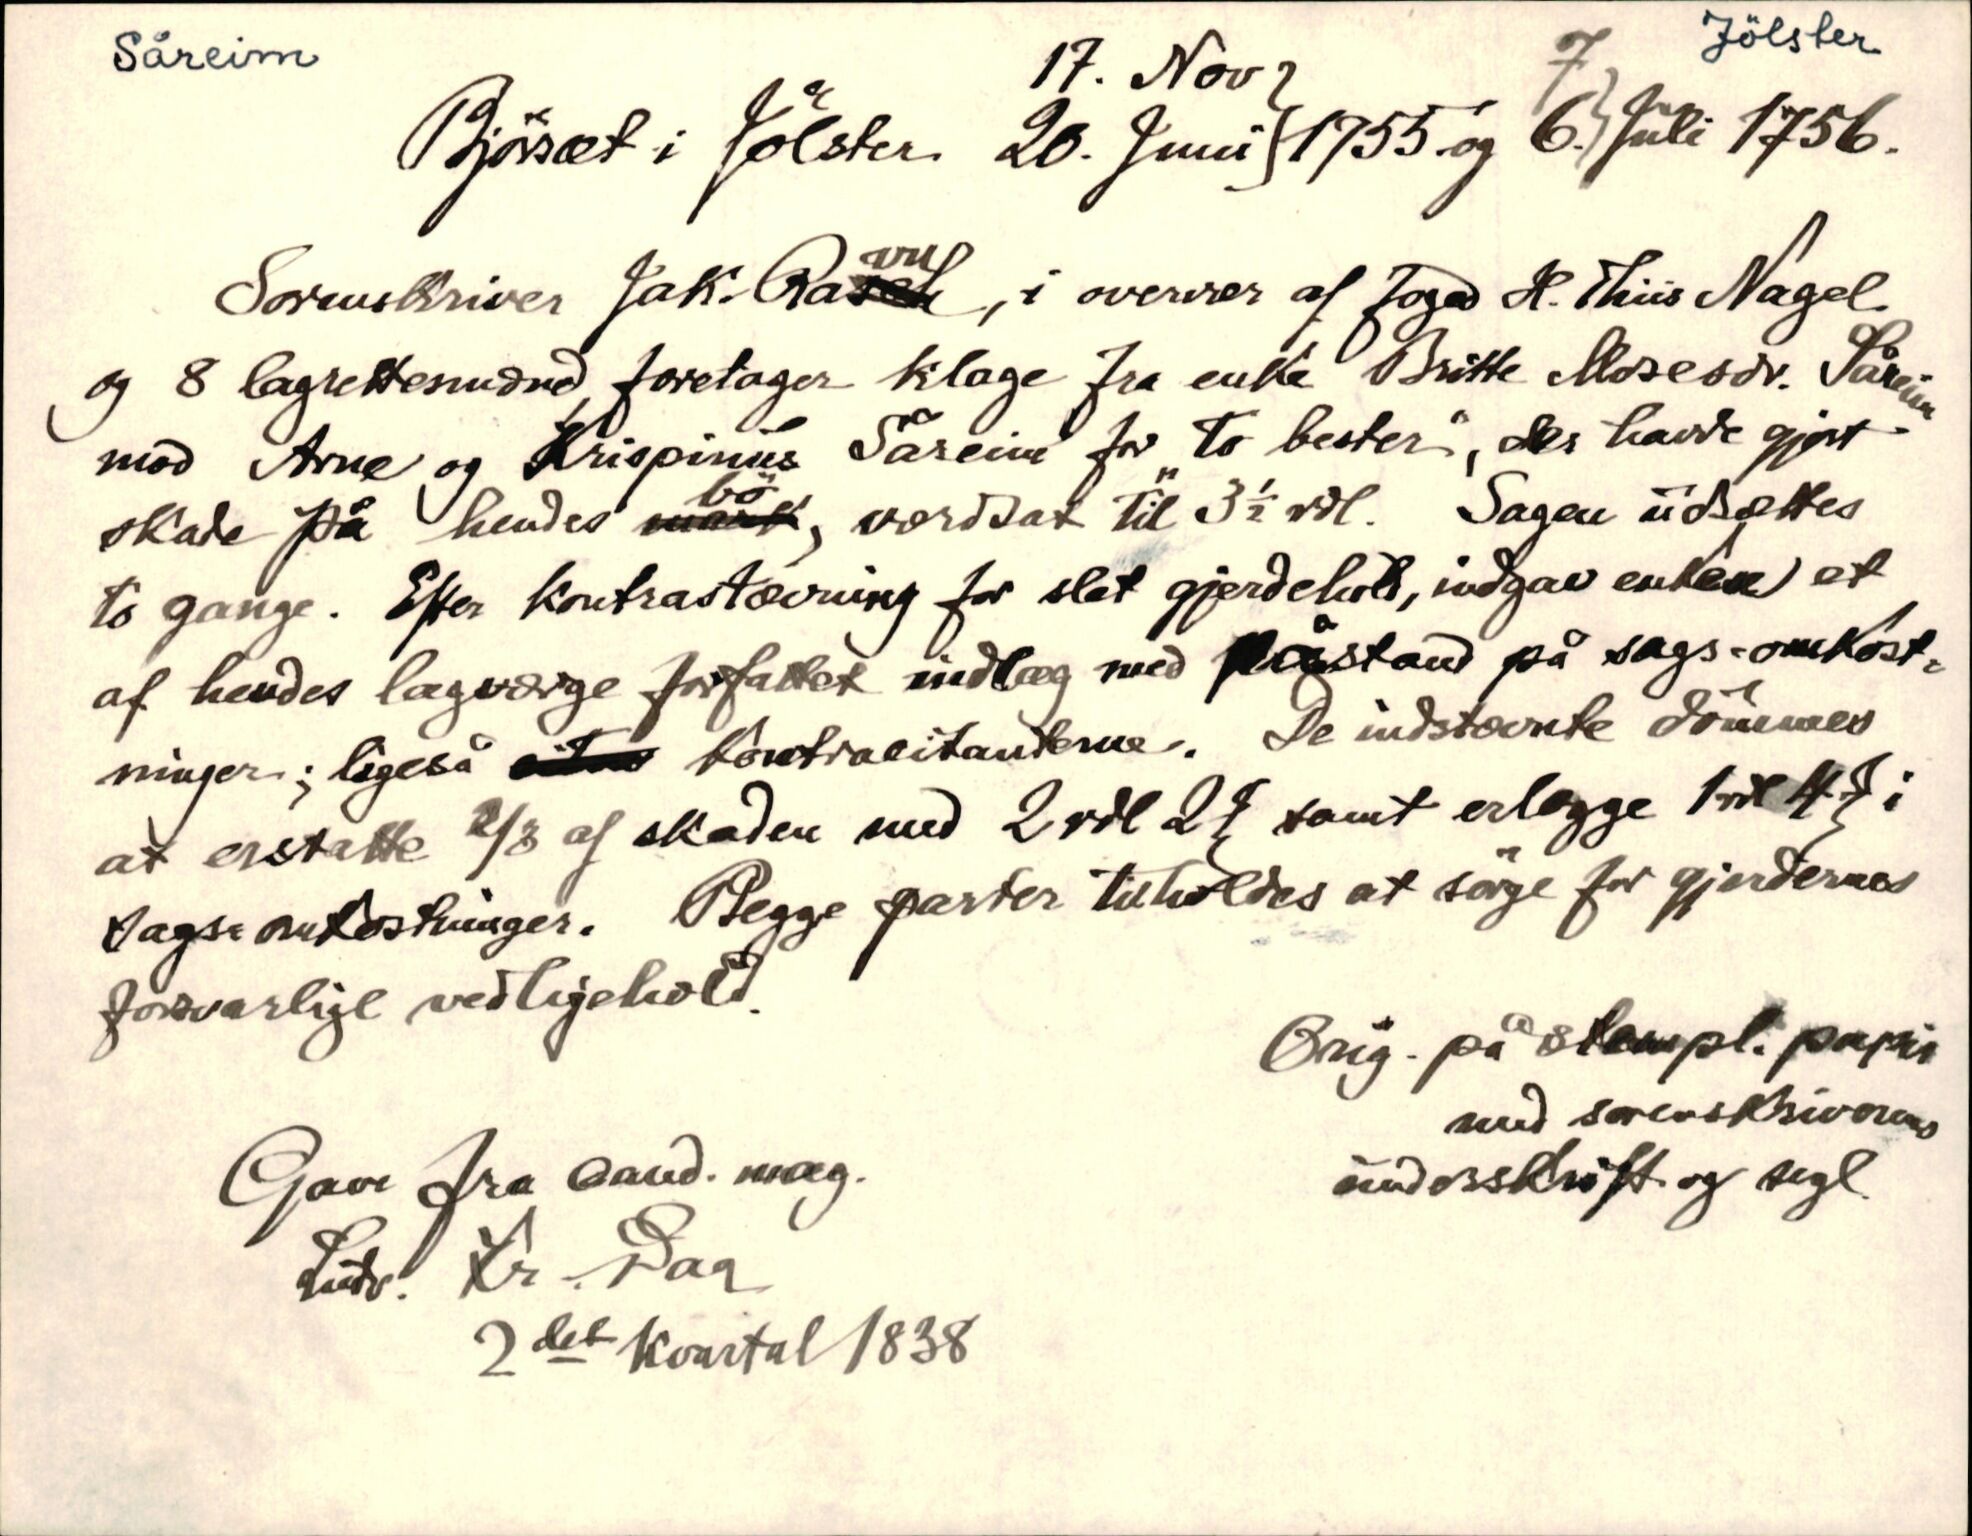 Såreim
Jölster
17. Nov 7
Bjørset i Jölster 20. Junii } 1755 og 6. } Juli 1756.
Sorenskriver Jak. Ravn, i overvær af foged H. Thiis Nagel
og 8 lagrettesmænd, foretager klage fra enke Britte Mosesdr. Såreim
mod Arne og Krispinus Såreim for "to bester", der havde gjort
skade på hendes bö, værdsat til 3½ rdl. Sagen udsættes
to gange. Efter kontrastævning for slet gjerdehold, indgav enken et
af hendes lagværge forfattet indlæg med påstand på sags-omkost-
ninger; ligeså kontracitanterne. De indstævnte dömmes
at erstatte 2/3 af skaden med 2 rdl 2 ß samt erlægge 1 rdl 4 ß i
sags-omkostninger. Begge parter tilholdes at sörge for gjerdernes
forsvarlige vedligehold.
Orig. på stempl. papir
med sorenskriverens
underskrift og segl.
Gave fra cand. mag.
Ludv. Kr. Daa
2det kvartal 1838